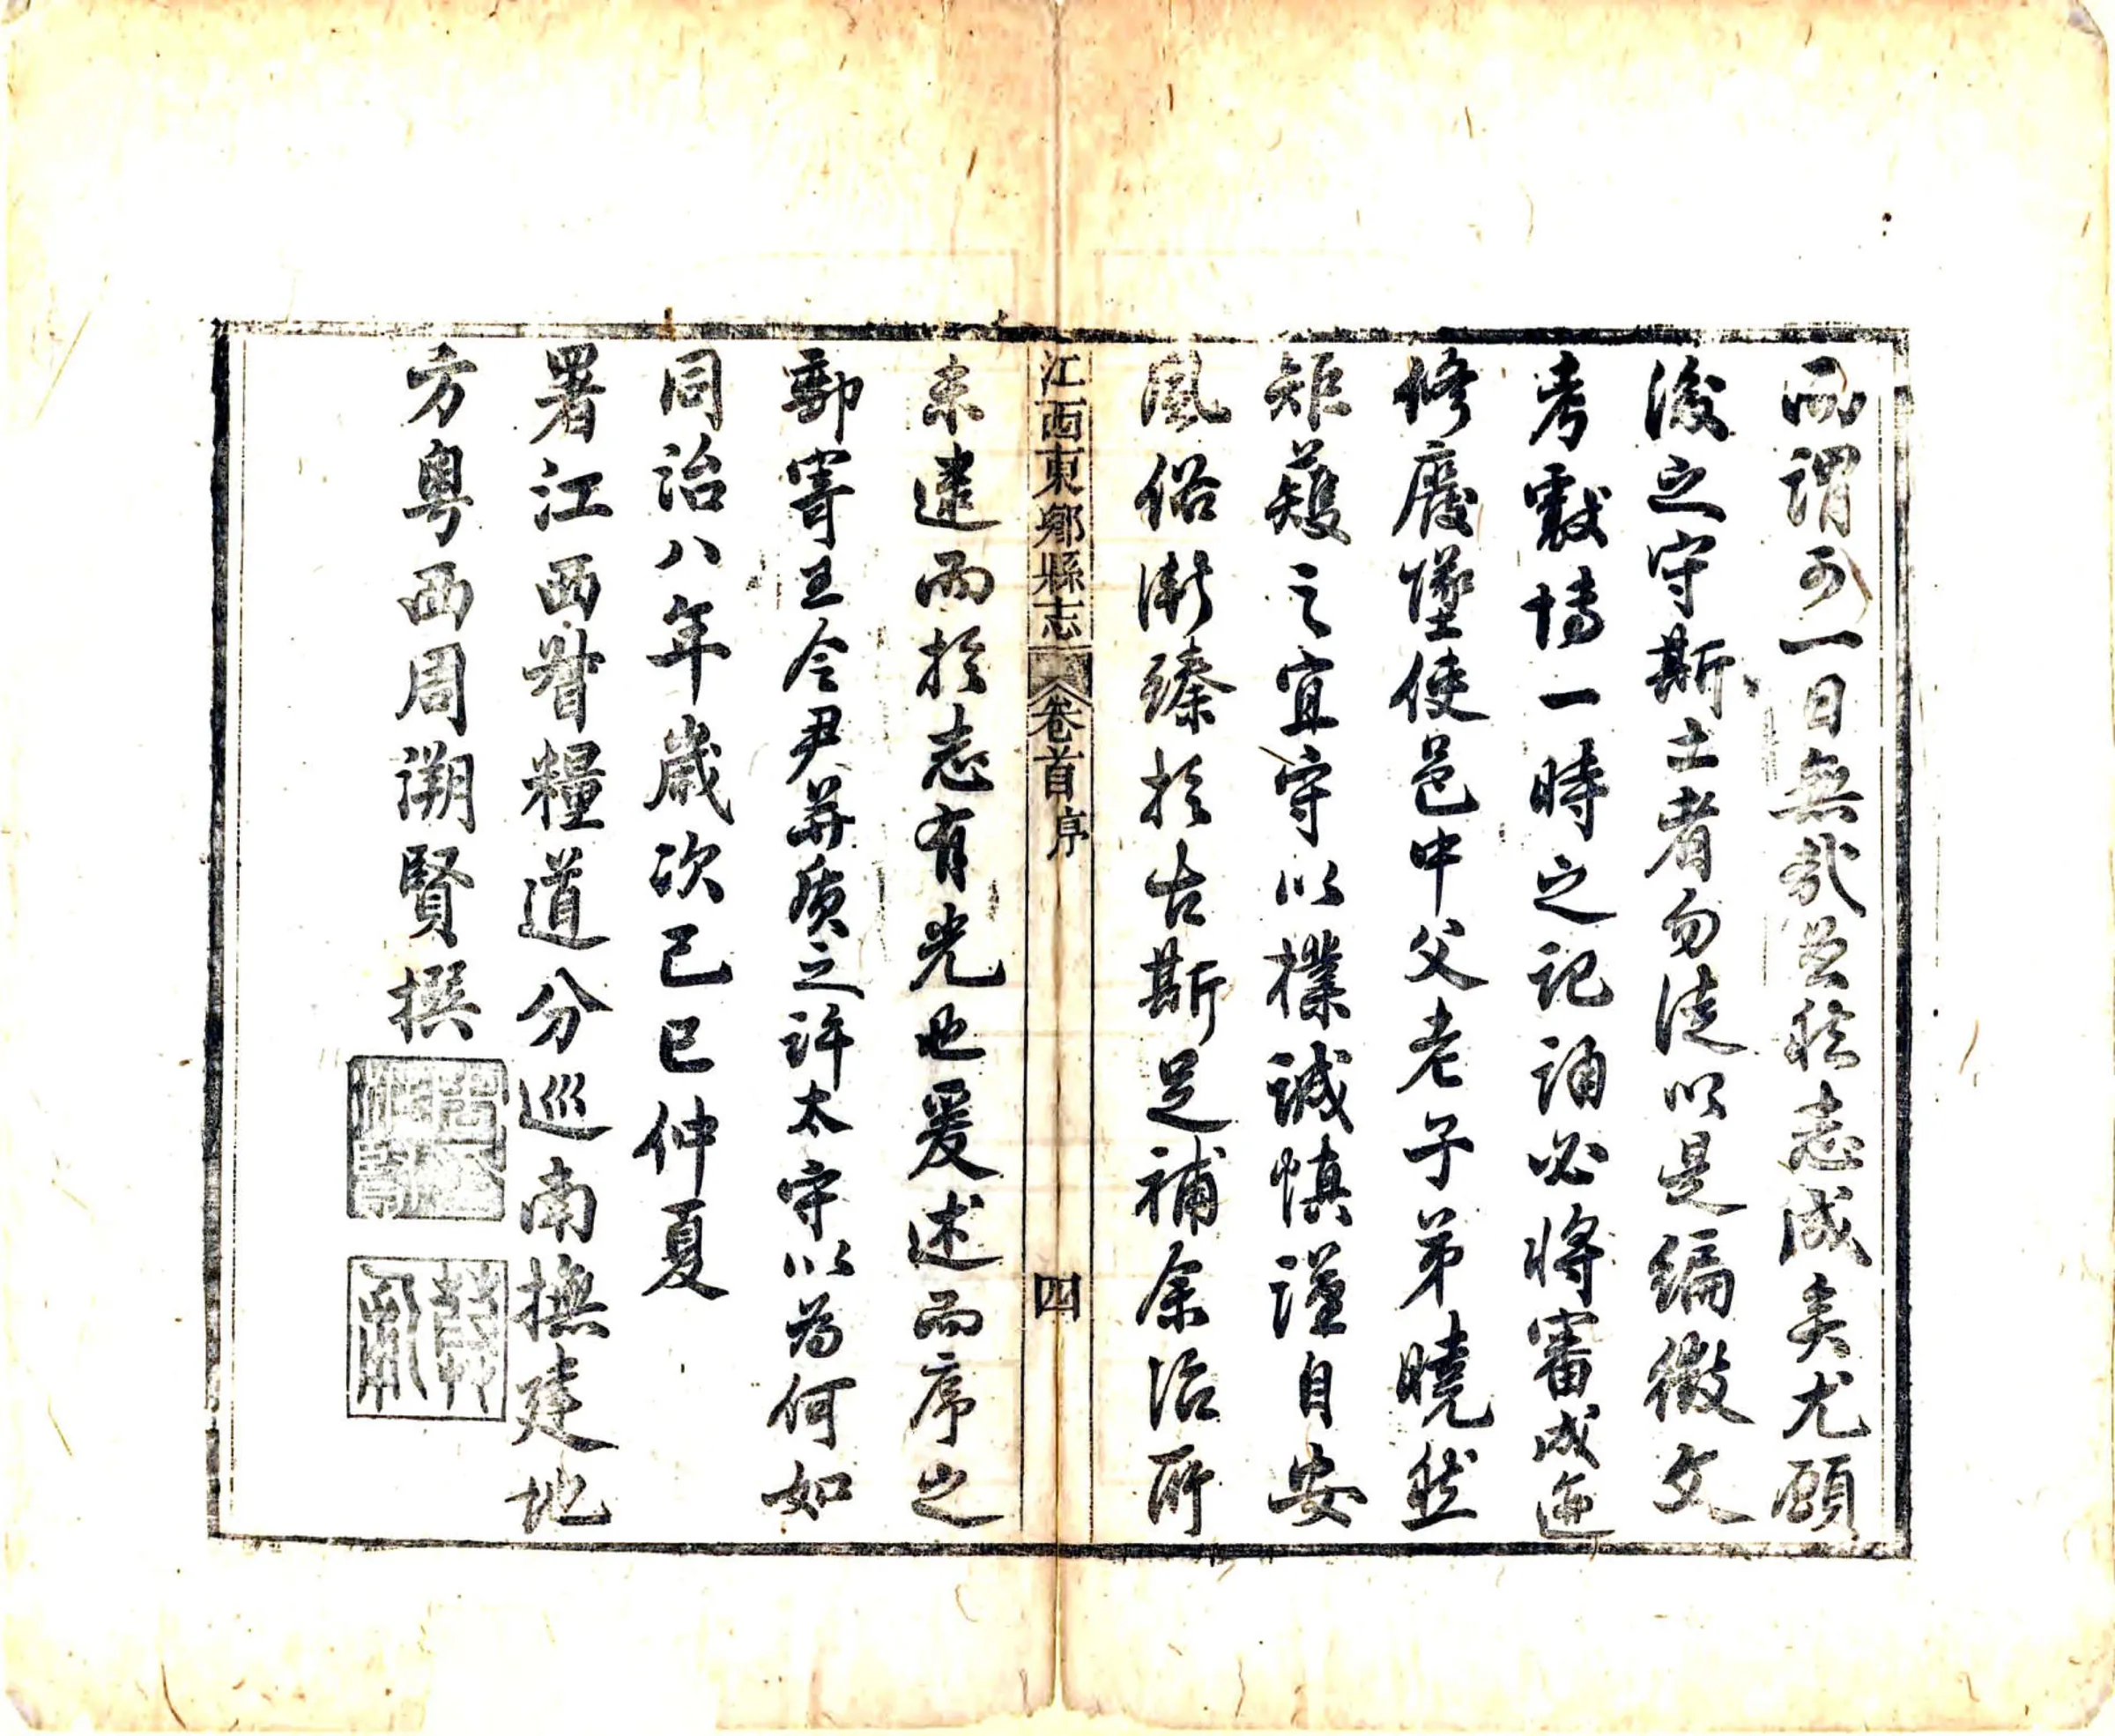 而謂可一日無哉於志成矣尤願
後之守斯土者勿徒以是編徵文
考獻博一時之記誦必將審成迹
修廢墜使邑中父老子弟曉然
矩矱之宜守以樸誠慎謹自安
風俗漸臻於古斯足補余治所
江西東鄉縣志 卷首序 四
未逮而於志有光也爰述而序之
郵寄王令尹並質之許太守以為何如
同治八年歲次己巳仲夏
署江西督糧道分巡南撫建地
方粵西周溯賢撰